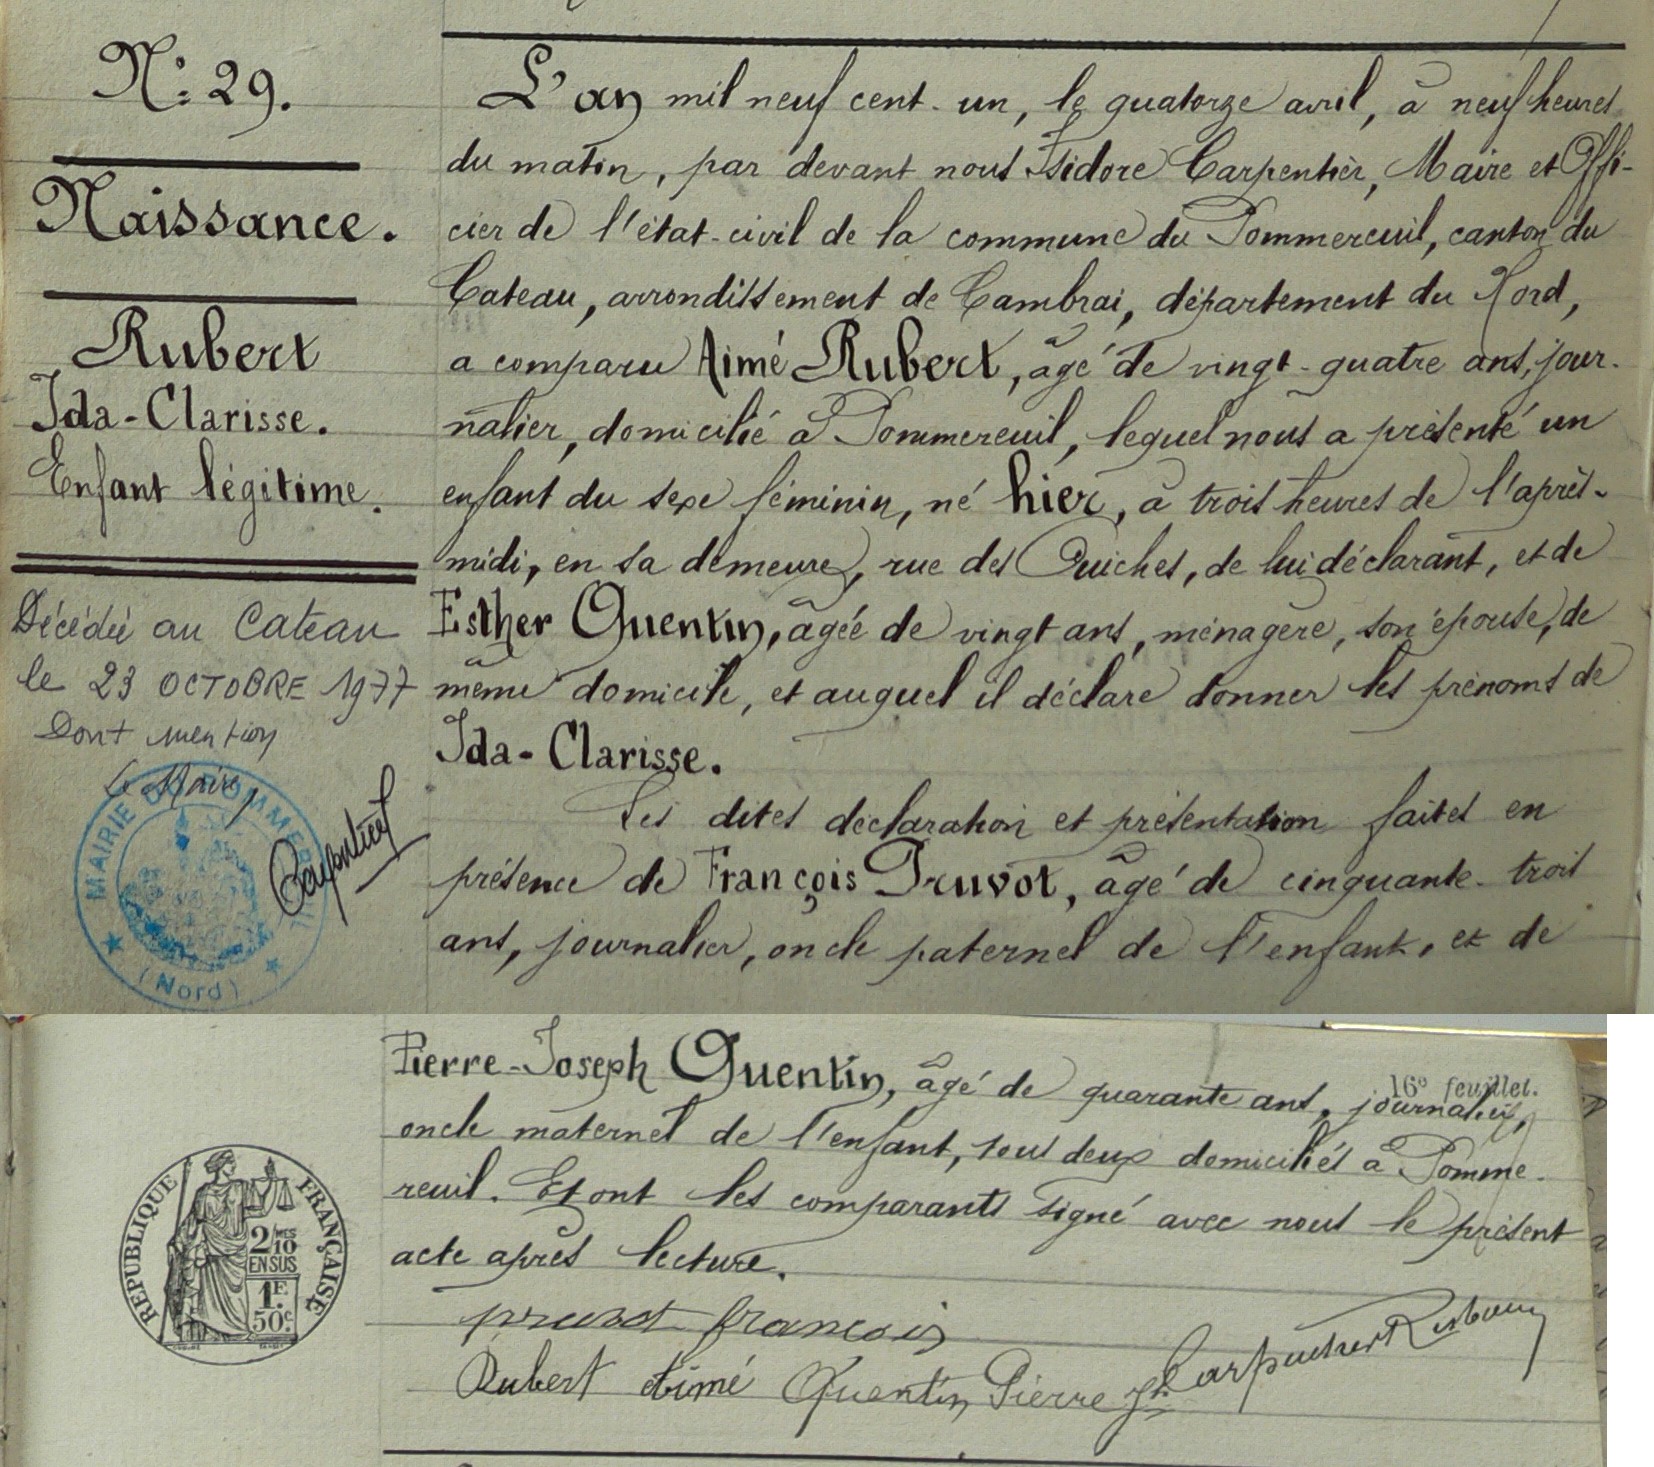 N° 29.
Naissance.
Rubert
Ida-Clarisse.
Enfant légitime.
Décédée au Cateau
le 23 OCTOBRE 1977
Dont mention
Le Maire,
MAIRIE DU POMMEREUIL
(Nord)
L'an mil neuf cent un, le quatorze avril, à neuf heures
du matin, par devant nous Isidore Carpentier, Maire et Offi-
cier de l'état-civil de la commune du Pommereuil, canton du
Cateau, arrondissement de Cambrai, département du Nord,
a comparu Aimé Rubert, âgé de vingt-quatre ans, jour-
nalier, domicilié à Pommereuil, lequel nous a présenté un
enfant du sexe féminin, né hier, à trois heures de l'après-
midi, en sa demeure, rue des Quiches, de lui déclarant, et de
Esther Quentin, âgée de vingt ans, ménagère, son épouse, de
même domicile, et auquel il déclare donner les prénoms de
Ida-Clarisse.
Les dites déclaration et présentation faites en
présence de François Pruvot, âgé de cinquante-trois
ans, journalier, oncle paternel de l'enfant, et de
Pierre-Joseph Quentin, âgé de quarante ans, journalier,
16e feuillet.
oncle maternel de l'enfant, tous deux domiciliés à Pomme-
reuil. Et ont les comparants signé avec nous le présent
acte après lecture.
RÉPUBLIQUE FRANÇAISE
2/10 MES
EN SUS
1F.
50c.
pruvot francois
Rubert Aimé Quentin Pierre Jh Carpentier